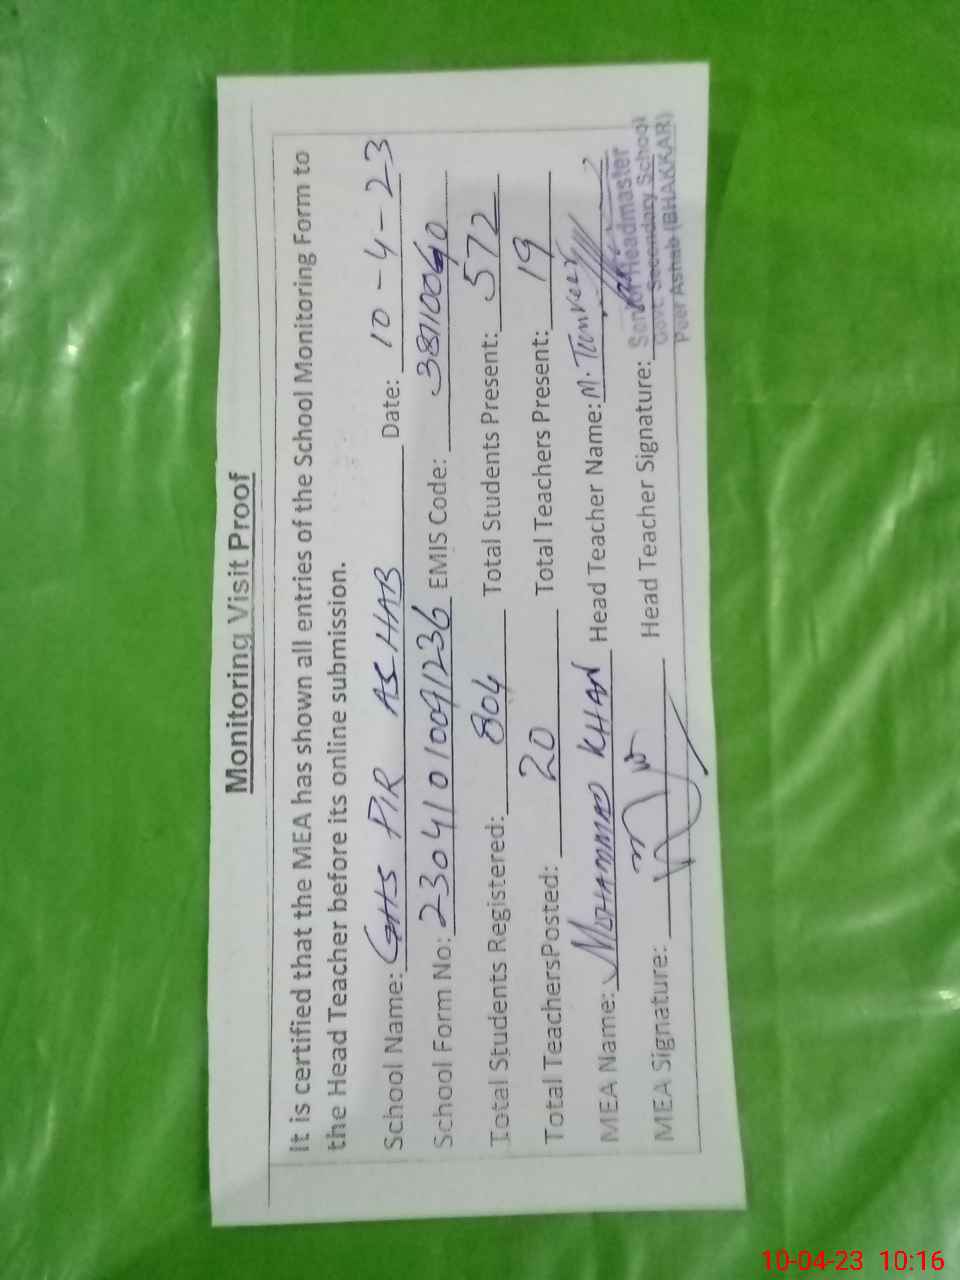 Monitoring Visit Proof
It is certified that the MEA has shown all entries of the School Monitoring Form to
the Head Teacher before its online submission.
School Name: GHS PIR ASHAB Date: 10-4-23
School Form No: 23041010091236 EMIS Code: 38110040
Total Students Registered: 804 Total Students Present: 572
Total TeachersPosted: 20 Total Teachers Present: 19
MEA Name: MOHAMMAD KHAN Head Teacher Name: M.
MEA Signature: Head Teacher Signature:
Senior Headmaster
Govt Secondary School
Peer Ashab (BHAKKAR)
10-04-23 10:16